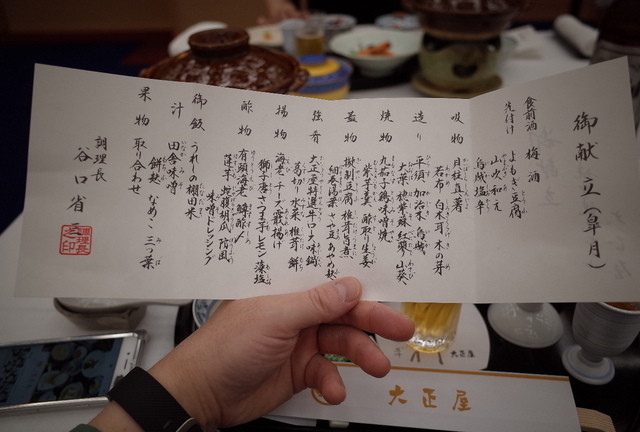 御献立(皐月)
食前酒 梅酒
先付け よもぎ豆腐
山吹和え
烏賊塩辛
吸物 月柱真薯
若布 白木耳 木の芽
造り 平須 加治木 烏賊
大葉 紅蓼 山葵
焼物 丸茄子鶏味噌焼
紫芋羹 酢取り生姜
蓋物 擬製豆腐 椎茸旨煮
細長浅葉 さや豆 あやめ麩
強肴 大正屋特選牛ロース味鍋
葛切 水菜 椎茸 餅
揚物 海老チーズ霰揚げ
獅子唐 さつま芋 レモン 藻塩
酢物 有頭海老
薄芋 蛇腹胡瓜 防風
味噌ドレッシング
御飯 うれしの棚田米
汁 田舎味噌
餅麩 なめこ 三つ葉
果物 取り合わせ
調理長
谷口省三
大正屋
大正屋